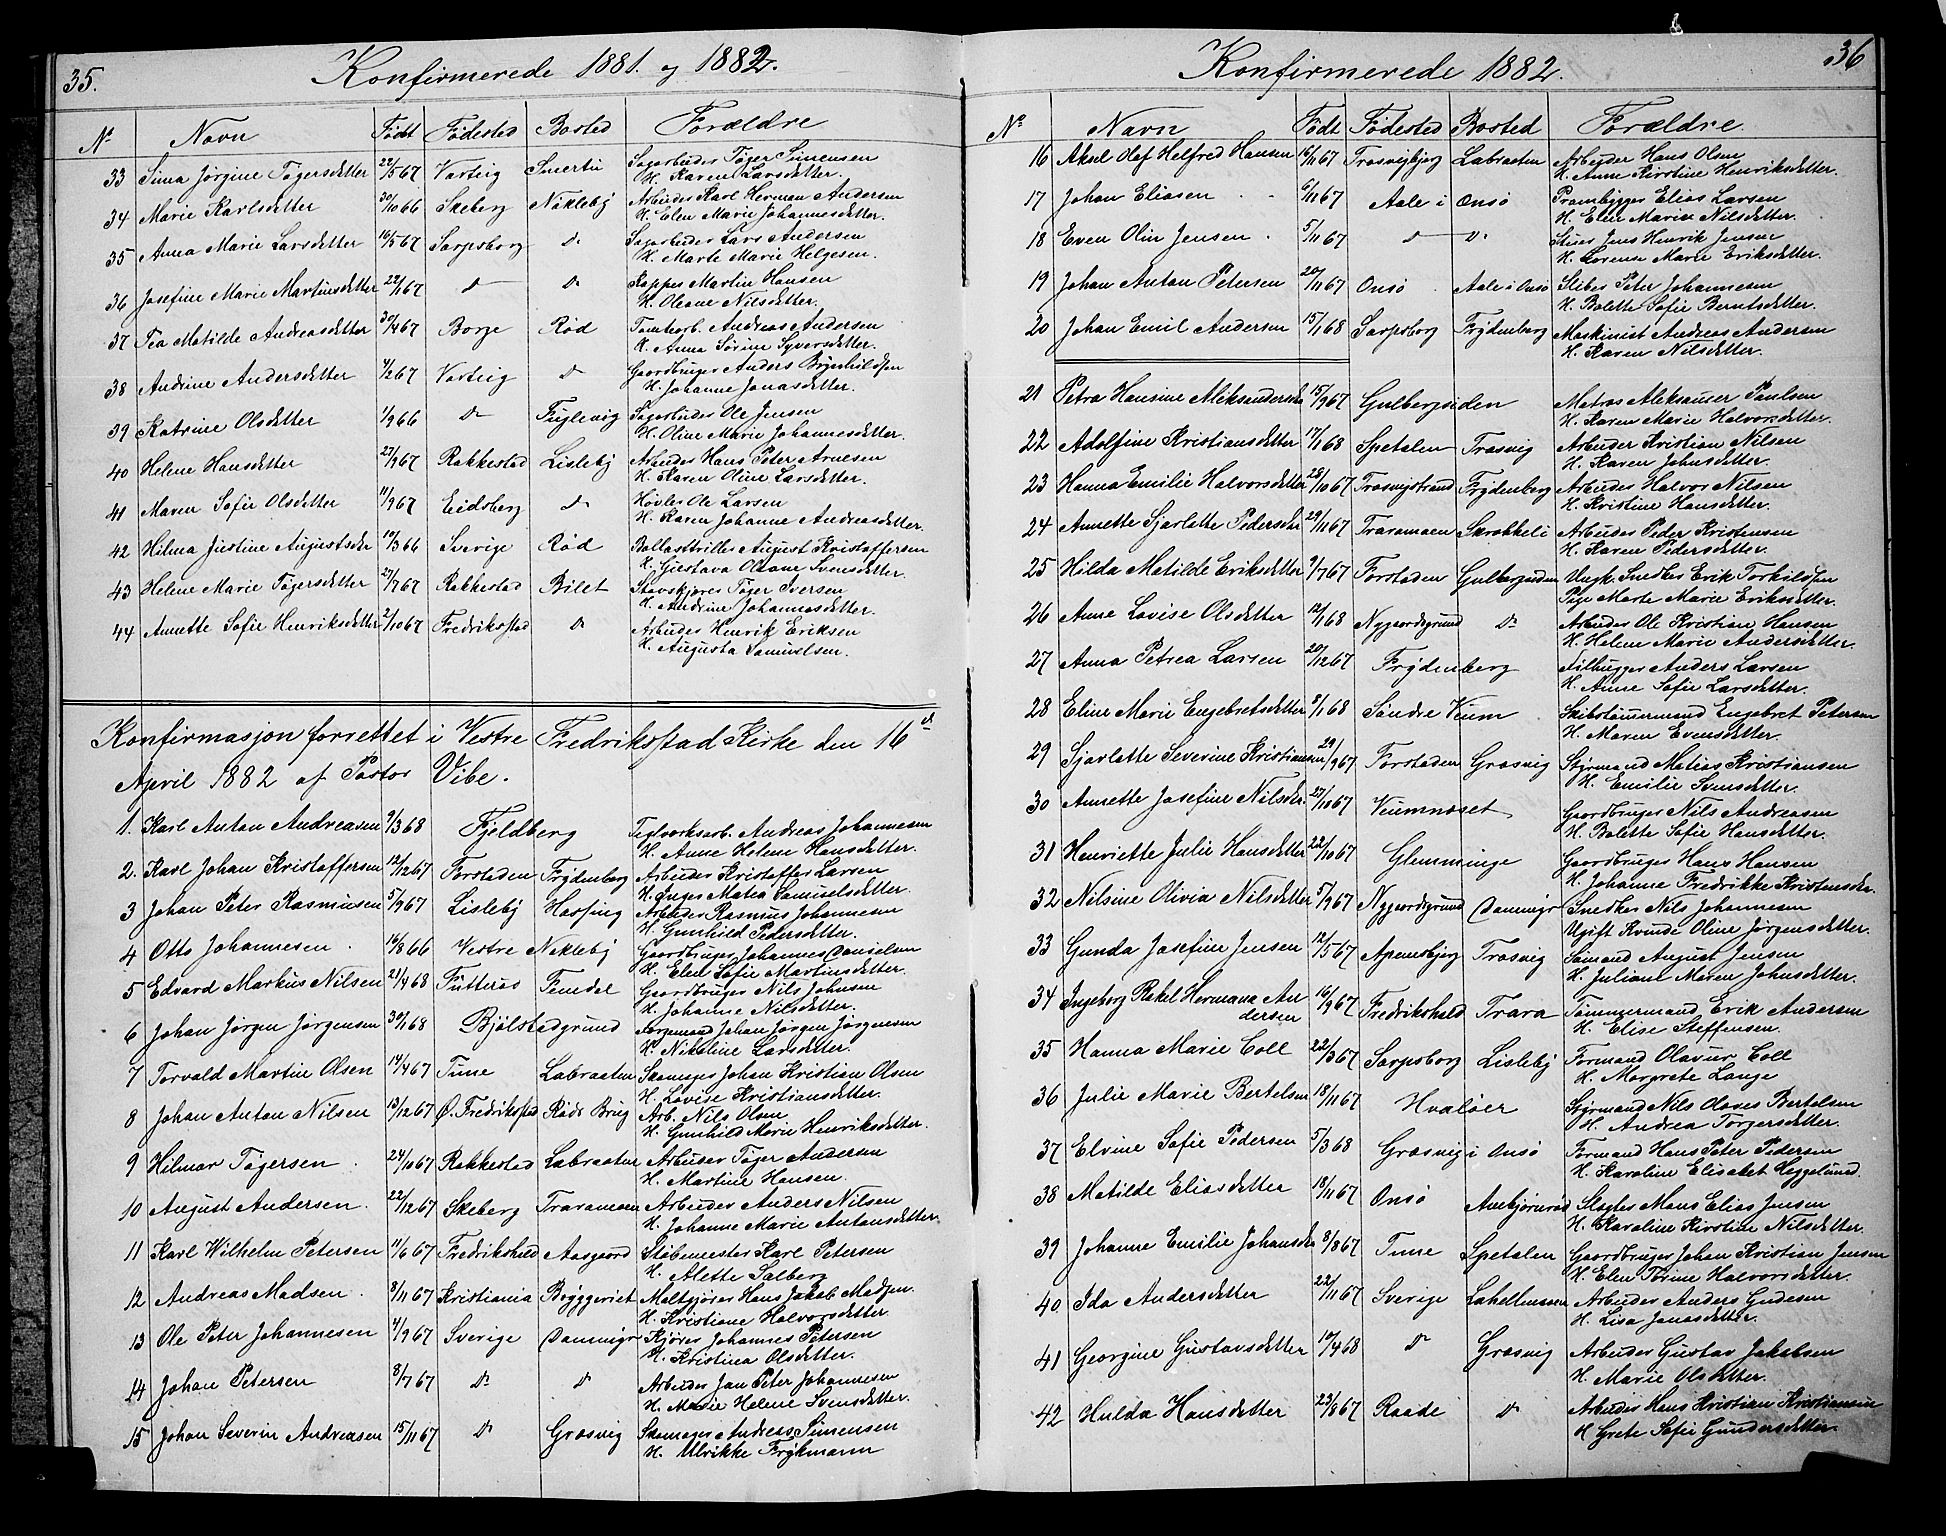 35.
Konfirmerede 1881. og 1882.
No Navn Født Fødested Bosted Forældre
33 Sima Jørgine Tøgersdatter 22/5 67 Varteig Sagarbeider Tøger Simensen
H. Karen Larsdatter.
34 Marie Karlsdatter 30/10 66 Skeberg Nøkleby Arbeider Karl Herman Andersen
H. Elen Marie Johannesdatter.
35 Anna Marie Larsdatter 16/5 67 Sarpsborg do Sagarbeider Lars Andersen
H. Marte Marie Helgesen.
36 Josefine Marie Martinsdatter 22/11 67 do do Kopper Martin Hansen
H. Oleane Nilsdatter.
37 Tea Matilde Andreasdatter 30/4 67 Borge Rød Tomtearb. Andreas Andersen
H. Anna Sørine Syversdatter.
38 Andrine Andersdatter 4/2 67 Varteig do Gaardbruger Anders Brynhildsen
H. Johanne Jonasdatter.
39 Katrine Olsdatter 1/9 66 do Fuglevig Sagarbeider Ole Jensen
H. Oline Marie Johannesdatter.
40 Helene Hansdatter 27/9 67 Rakkestad Lisleby Arbeider Hans Peter Arnesen
H. Karen Oline Larsdatter.
41 Maren Sofie Olsdatter 11/9 67 Eidsberg do Høvler Ole Larsen
H. Karen Johanne Andreasdatter.
42 Hilma Justine Augustsdtr 10/3 66 Sverige Rød Ballasttriller August Kristoffersen
H. Gustava Oleane Svensdatter.
43 Helene Marie Tøgersdatter 27/7 67 Rakkestad Bilet Stavskjører Tøger Iversen
H. Andrine Johannesdatter.
44 Annette Sofie Henriksdatter 21/10 67 Fredrikstad do Arbeider Henrik Eriksen
H. Augusta Samuelsen.
Konfirmasjon forrettet i Vestre Fredrikstad Kirke den 16d
April 1882 af Pastor Vibe.
1. Karl Anton Andreasen 9/3 68 Fjeldberg Teglværksarb. Andreas Johannesen
H. Anne Helene Hansdatter.
2. Karl Johan Kristoffersen 12/12 67 Forstaden Frydenberg Arbeider Kristoffer Larsen
H. Inger Matea Samuelsdatter.
3 Johan Peter Rasmusen 5/9 67 Lisleby Hassing Arbeider Rasmus Johannesen
H. Gunhild Pedersdatter.
4 Otto Johannesen 14/8 66 Vestre Nøkleby Gaardbruger Johannes Danielsen
H. Elen Sofie Martinsdatter.
5 Edvard Markus Nilsen 21/4 68 Futterød Femdal Gaardbruger Nils Johnsen
H. Johanne Nilsdatter.
6 Johan Jørgen Jørgensen 30/1 68 Bjølstadgrund Formand Johan Jørgen Jørgensen
H. Nikoline Larsdatter.
7 Torvald Martin Olsen 14/4 67 Tune Labraaten Skomager Johan Kristian Olsen
H. Lovise Kristiansdatter.
8 Johan Anton Nilsen 13/12 67 Ø. Fredrikstad Røds Brug Arb. Nils Olsen
H. Gunhild Marie Henriksdatter.
9 Hilmar Tøgersen 24/10 67 Rakkestad Labraaten Arbeider Tøger Andersen
H. Martine Hansen.
10 August Andersen. 22/12 67 Skeberg Traramoen Arbeider Anders Nilsen
H. Johanne Marie Antonsdatter
11 Karl Wilhelm Petersen 11/6 67 Fredrikshald Aasgaard Støbemester Karl Petersen
H. Alette Solberg
12 Andreas Madsen. 8/11 67 Kristiania Bryggeriet Maltgjører Hans Jakob Madsen.
H. Kristiane Halvorsdatter
13 Ole Peter Johannesen 4/9 67 Sverige Dammyr Kjører Johannes Petersen
H. Kristina Olsdatter.
14 Johan Petersen 8/7 67 do do Arbeider Jan Peter Johannesen
H. Marie Helene Svensdatter.
15 Johan Severin Andreasen 15/11 67 do Græsvig Skomager Andreas Simensen
H. Ulrikke Frykmann
36
Konfirmerede 1882.
No Navn Født Fødested Bosted Forældre.
16 Aksel Olaf Helfred Hansen 16/11 67 Trosvigbjerg Labraaten Arbeider Hans Olsen
H. Anne Kirstine Henriksdatter.
17 Johan Eliasen 6/11 67 Aale i Onsø Prambygger Elias Larsen
H. Elen Maria Nilsdatter.
18 Even Olin Jensen 5/11 67 do do Stuer Jens Henrik Jensen
H. Lorense Marie Eriksdatter.
19 Johan Anton Petersen 20/11 67 Onsø Aale i Onsø Sliber Peter Johannesen
H. Bolette Sofie Berntsdatter.
20 Johan Emil Andersen 15/1 68 Sarpsborg Frydenberg Maskinist Andreas Andersen
H. Karen Nilsdatter.
21 Petra Hansine Aleksandersd. 15/9 67 Gulbergsiden Matros Aleksander Paulsen
H. Karen Marie Halvorsdatter.
22 Adolfine Kristiansdatter 17/1 68 Spetalen Trosvig Arbeider Kristian Nilsen
H. Karen Johnsdatter.
23 Hanna Emilie Halvorsdatter 28/10 67 Trosvigstrand Frydenberg Arbeider Halvor Nilsen
H. Kristine Hansdatter.
24 Annette Sjarlotte Pedersdtr 29/11 67 Traramoen Skrokkeli Arbeider Peder Kristensen
H. Karen Pedersdatter.
25 Hilda Matilde Eriksdatter 9/7 67 Forstaden Gulbergsiden Ungk. Snedker Erik Torkildsen
Pige Marte Marie Eriksdatter.
26 Anne Lovise Olsdatter 12/1 68 Nygaardsgrund do Arbeider Ole Kristian Hansen
H. Helene Marie Andersdatter.
27 Anna Petrea Larsen 20/12 67 Frydenberg Filhugger Anders Larsen
H. Anne Sofie Larsdatter.
28 Eline Marie Engebretsdatter 8/1 68 Søndre Veum Skibstømmermand Engebret Petersen
H. Maren Evensdatter.
29 Sjarlotte Severine Kristiansen 29/9 67 Forstaden Græsvig Styrmand Matias Kristiansen
H. Emilie Svensdatter.
30 Annette Josefine Nilsdtr. 27/10 67 Veumnæset Gaardbruger Nils Andreasen
H. Bolette Sofie Hansdatter.
31 Henriette Julie Hansdatter 22/10 67 Glemminge Gaardbruger Hans Hansen
H. Johanne Fredrikke Kristensdtr.
32 Nilsine Olivia Nilsdatter 5/9 67 Nygaardsgrund Dammyr Snedker Nils Johannesen
Ugift Kvinde Oline Jørgensdatter.
33 Gunda Josefine Jensen 12/5 67 Apenesbjerg Trosvig Sømand August Jensen
H. Juliane Maren Johnsdatter.
34 Ingeborg Rakel Hermana An
dersen 16/9 67 Fredrikshald Trara Tømmermand Erik Andersen
H. Elise Steffensen.
35 Hanna Marie Coll 22/3 67 Sarpsborg Lisleby Formand Olavur Coll
H. Margrete Lange
36 Julie Marie Bertelsen 18/11 67 Hvaløer Styrmand Nils Olaves Bertelsen
H. Andrea Torgersdatter.
37 Elvine Sofie Pedersen 5/3 68 Græsvig i Onsø Formand Hans Peter Pedersen
H. Karoline Elisabet Heggelund.
38 Matilde Eliasdatter 18/11 67 Onsø Ambjørnrød Slagter Mons Elias Jensen
H. Karoline Kirstine Nilsdatter
39 Johanne Emilie Johansdtr 8/8 67 Tune Spetalen Gaardbruger Johan Kristian Jensen
H. Elen Torine Halvorsdatter.
40 Ida Andersdatter 22/11 67 Sverige Lahellmoen Arbeider Anders Gudesen
H. Lisa Jonasdatter.
41 Georgine Gustavsdatter 10/4 68 do Græsvig Arbeider Gustav Jakobsen
H. Marie Olsdatter.
42 Hulda Hansdatter 23/8 67 Raade do Arbeider Hans Kristian Kristiansen
H. Grete Sofie Gundersdatter.